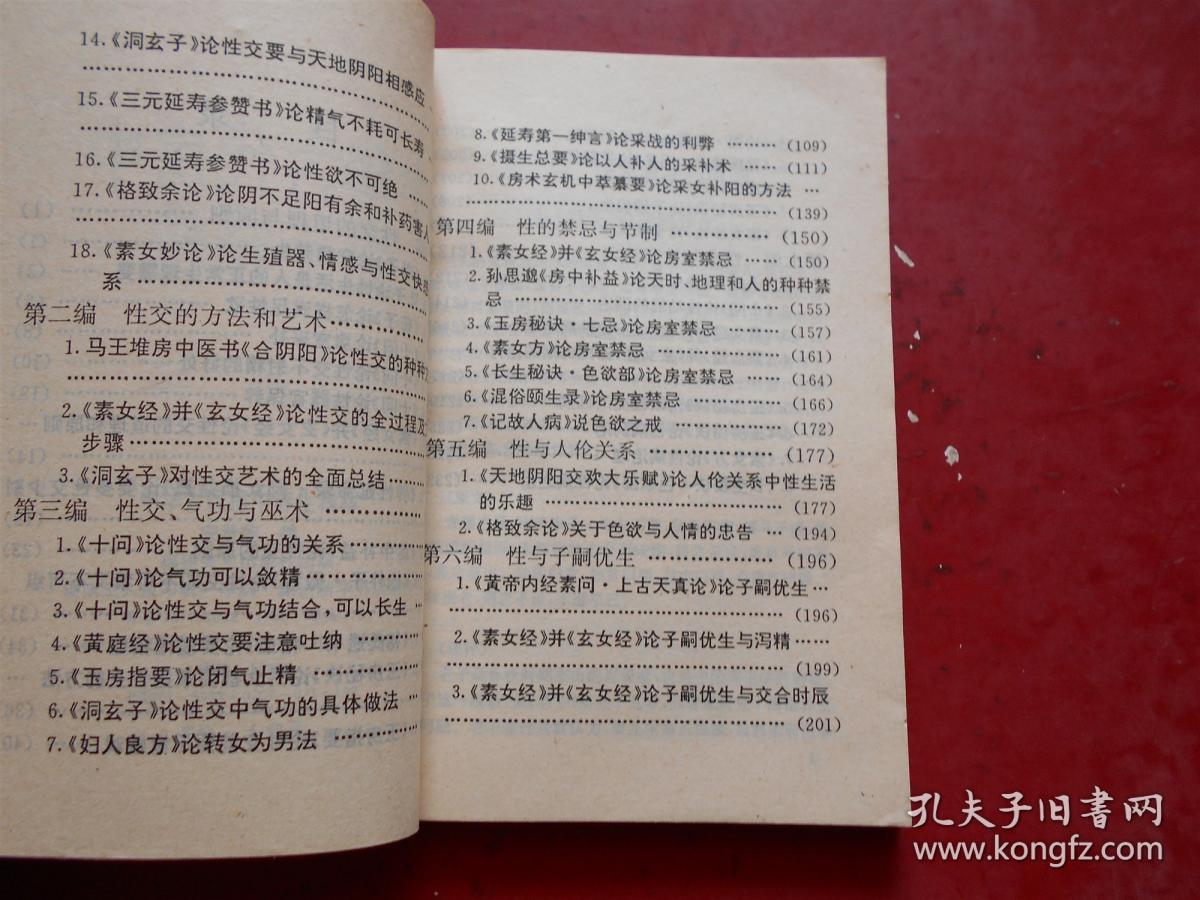 14.《洞玄子》论性交要与天地阴阳相感应
……………………………………
15.《三元延寿参赞书》论精气不耗可长寿
……………………………………
16.《三元延寿参赞书》论性欲不可绝 ……
17.《格致余论》论阴不足阳有余和补药害人
……………………………………
18.《素女妙论》论生殖器、情感与性交快感
系 ……………………………
第二编 性交的方法和艺术…………
1.马王堆房中医书《合阴阳》论性交的种种
……………………………………
2.《素女经》并《玄女经》论性交的全过程及
步骤……………………………
3.《洞玄子》对性交艺术的全面总结……
第三编 性交、气功与巫术 …………
1.《十问》论性交与气功的关系…………
2.《十问》论气功可以敛精 ……………
3.《十问》论性交与气功结合,可以长生 …
4.《黄庭经》论性交要注意吐纳 ………
5.《玉房指要》论闭气止精 ……………
6.《洞玄子》论性交中气功的具体做法 …
7.《妇人良方》论转女为男法 …………
8.《延寿第一绅言》论采战的利弊 ……… (109)
9.《摄生总要》论以人补人的采补术 …… (111)
10.《房术玄机中萃纂要》论采女补阳的方法 …
…………………………………… (139)
第四编 性的禁忌与节制 …………… (150)
1.《素女经》并《玄女经》论房室禁忌 …… (150)
2.孙思邈《房中补益》论天时、地理和人的种种禁
忌 ………………………………… (155)
3.《玉房秘诀·七忌》论房室禁忌 ……… (157)
4.《素女方》论房室禁忌 ……………… (161)
5.《长生秘诀·色欲部》论房室禁忌 …… (164)
6.《混俗颐生录》论房室禁忌 ………… (166)
7.《记故人病》说色欲之戒 …………… (172)
第五编 性与人伦关系 ……………… (177)
1.《天地阴阳交欢大乐赋》论人伦关系中性生活
的乐趣 …………………………… (177)
2.《格致余论》关于色欲与人情的忠告 … (194)
第六编 性与子嗣优生 ……………… (196)
1.《黄帝内经素问·上古天真论》论子嗣优生…
…………………………………… (196)
2.《素女经》并《玄女经》论子嗣优生与泻精……
…………………………………… (199)
3.《素女经》并《玄女经》论子嗣优生与交合时辰
…………………………………… (201)
孔夫子旧书网
www.kongfz.com